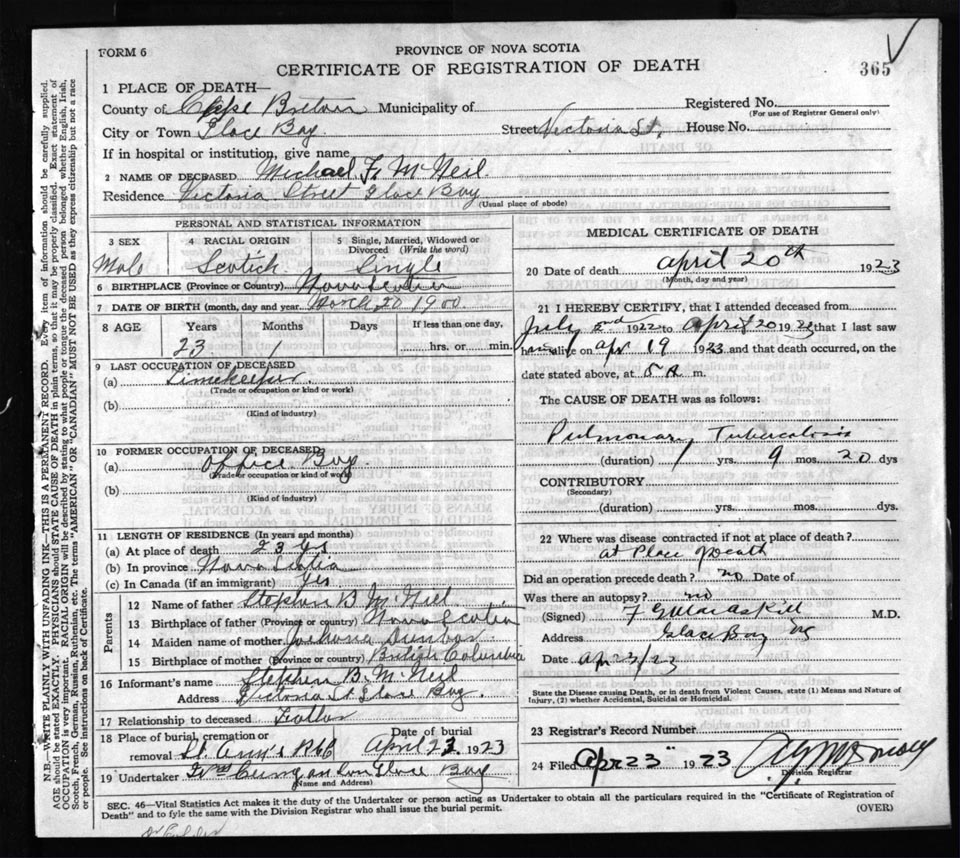 FORM 6
PROVINCE OF NOVA SCOTIA
CERTIFICATE OF REGISTRATION OF DEATH
365
1 PLACE OF DEATH—
County of Cape Breton Municipality of
Registered No.
(For use of Registrar General only)
City or Town Glace Bay Street Victoria St, House No.
If in hospital or institution, give name
2 NAME OF DECEASED Michael F. McNeil
Residence Victoria Street Glace Bay
(Usual place of abode)
PERSONAL AND STATISTICAL INFORMATION
3 SEX
Male
4 RACIAL ORIGIN
Scotich
5 Single, Married, Widowed or Divorced (Write the word)
Single
6 BIRTHPLACE (Province or Country) Nova Scotia
7 DATE OF BIRTH (month, day and year) March 20 1900
8 AGE Years Months Days If less than one day,
23 1 hrs. or min.
9 LAST OCCUPATION OF DECEASED
(a) Timekeeper
(Trade or occupation or kind of work)
(b)
(Kind of industry)
10 FORMER OCCUPATION OF DECEASED
(a) Office Boy
(Trade or occupation or kind of work)
(b)
(Kind of industry)
11 LENGTH OF RESIDENCE (In years and months)
(a) At place of death 23 yrs
(b) In province Nova Scotia
(c) In Canada (if an immigrant) Yes
Parents
12 Name of father Stephen B McNeil
13 Birthplace of father (Province or country) Nova Scotia
14 Maiden name of mother Dunbar
15 Birthplace of mother (Province or country) British Columbia
16 Informant's name Stephen B. McNeil
Address Victoria St Glace Bay.
17 Relationship to deceased Father
18 Place of burial, cremation or removal St. Ann's
Date of burial
April 23 1923
19 Undertaker Glace Bay
(Name and Address)
MEDICAL CERTIFICATE OF DEATH
20 Date of death april 20th 1923
(Month, day and year)
21 I HEREBY CERTIFY, that I attended deceased from
July 2nd 1922 to April 20 19 that I last saw
him alive on apr 19 1923 and that death occurred, on
date stated above, at 5 a m.
The CAUSE OF DEATH was as follows:
Pulmonary Tuberculosis
(duration) 1 yrs. 9 mos. 20 dys
CONTRIBUTORY
(Secondary)
(duration) yrs. mos. dys
22 Where was disease contracted if not at place of death?
at Place of Death
Did an operation precede death? no Date of
Was there an autopsy? no
(Signed) M.D.
Address Glace Bay NS
Date Ap 23/23
State the Disease causing Death, or in death from Violent Causes, state (1) Means and Nature of Injury, (2) whether Accidental, Suicidal or Homicidal.
23 Registrar's Record Number
24 Filed Apr 23" 1923
Division Registrar
SEC. 46—Vital Statistics Act makes it the duty of the Undertaker or person acting as Undertaker to obtain all the particulars required in the "Certificate of Registration of
Death" and to fyle the same with the Division Registrar who shall issue the burial permit.
(OVER)
N.B.—WRITE PLAINLY WITH UNFADING INK—THIS IS A PERMANENT RECORD. Every item of information should be carefully supplied.
AGE should be stated EXACTLY. PHYSICIANS should STATE CAUSE OF DEATH in plain terms, so that it may be properly classified. Exact statement of
OCCUPATION is very important. RACIAL ORIGIN will be described by stating to what people or tongue the deceased person belonged whether English, Irish,
Scotch, French, German, Russian, Ruthenian, etc. The terms "AMERICAN" OR "CANADIAN" MUST NOT BE USED as they express citizenship but not a race
or people. See instructions on back of Certificate.